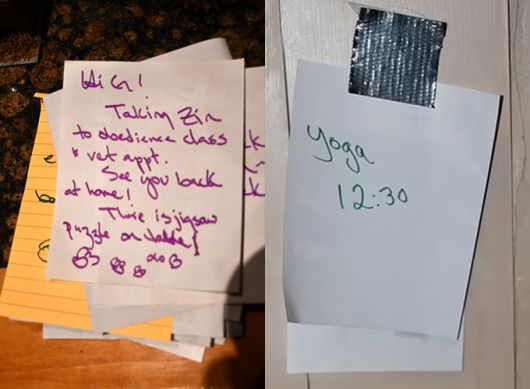 Hi G!
Taking Zin
to obedience class
& vet appt.
See you back
at home!
There is jigsaw
puzzle on table
yoga
12:30